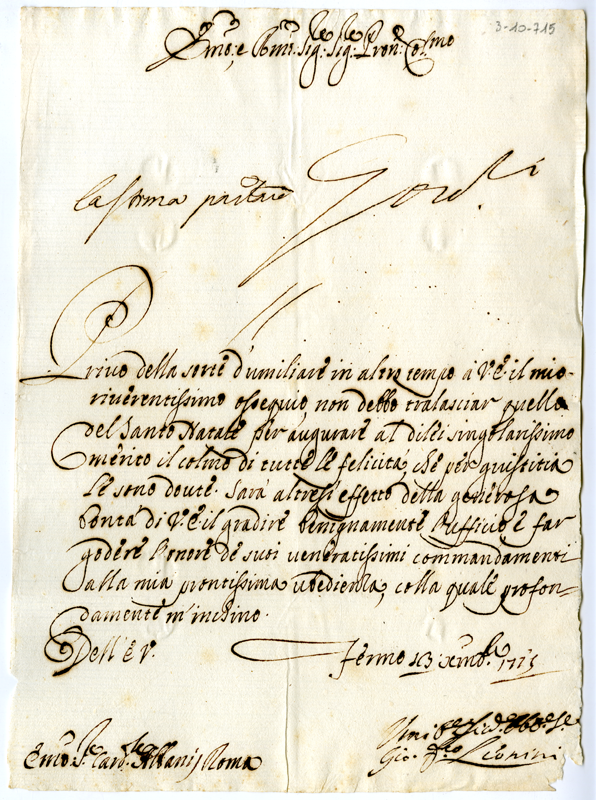 3-10-715
Em̃o, e Rm̃o Sig.re Sig.re Pron. Col.mo
la forma
Privo della sorte d'umiliare in altro tempo à V.E. il mio
riverentissimo ossequio, non debbo tralasciar quello
del Santo Natale per augurare al di lei singolarissimo
merito il colmo di tutte le felicità, che per giustitia
le sono doute. Sarà altresì effetto della generosa
bontà di V.E. il gradire benignamente l'ufficio, e far
godere l'onore de suoi veneratissimi commandamenti
alla mia prontissima ubedienza, colla quale profon-
damente m'inchino.
Dell' E.V. Fermo 13 Xmb.re 1715
Em̃o S.re Card.le Albani Roma
Gio. Fr.co